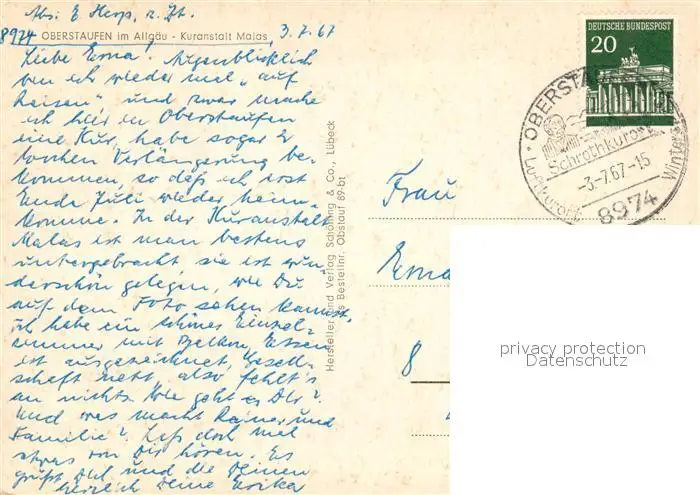 Abs: E. Herp, z. Zt.
8974 OBERSTAUFEN im Allgäu - Kuranstalt Malas 3.7.67
Liebe Erna. Augenblicklich
bin ich wieder mal „auf
Reisen" und zwar mache
ich hier in Oberstaufen
eine Kur, habe sogar
Wochen Verlängerung be-
kommen, so daß ich erst
Ende Juli wieder heim-
komme. In der Kuranstalt
Malas ist man bestens
untergebracht sie ist wun-
derschön gelegen, wie Du
auf dem Foto sehen kannst,
ich habe ein schönes Einzel-
zimmer mit Balkon, Essen
ist ausgezeichnet, Gesell-
schaft nett also fehlt's
an nichts. Wie geht es Dir?
Und was macht Rainer und
Familie? Laß doch mal
etwas von Dir hören. Es
grüßt Dich und die Deinen
herzlich Deine Erika
Hersteller und Verlag Schöning & Co., Lübeck
Bestellnr. Obstauf 89-bt
DEUTSCHE BUNDESPOST
20
OBERSTAUFEN
Schrothkurort
-3.-7.67-15
Luftkurort
8974
Winter
Frau
Erna
8
privacy protection
Datenschutz